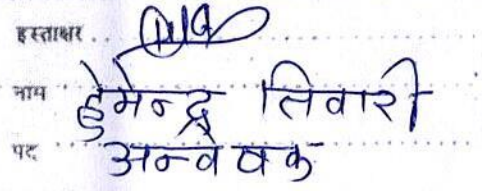 हस्ताक्षर
नाम हेमेन्द्र तिवारी
पद अन्वेषक